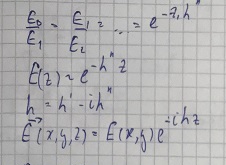 E₀/E₁ = E₁/E₂ = ... = e^{-z₁h"}
E(z) ~ e^{-h"z}
h = h' - ih"
E⃗(x,y,z) = E(x,y)e^{-ihz}